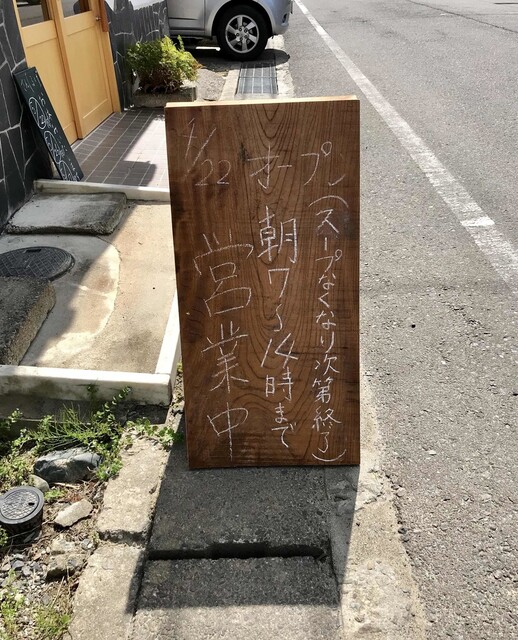 4/22 オープン
(スープなくなり次第終了)
朝7〜14時まで
営業中